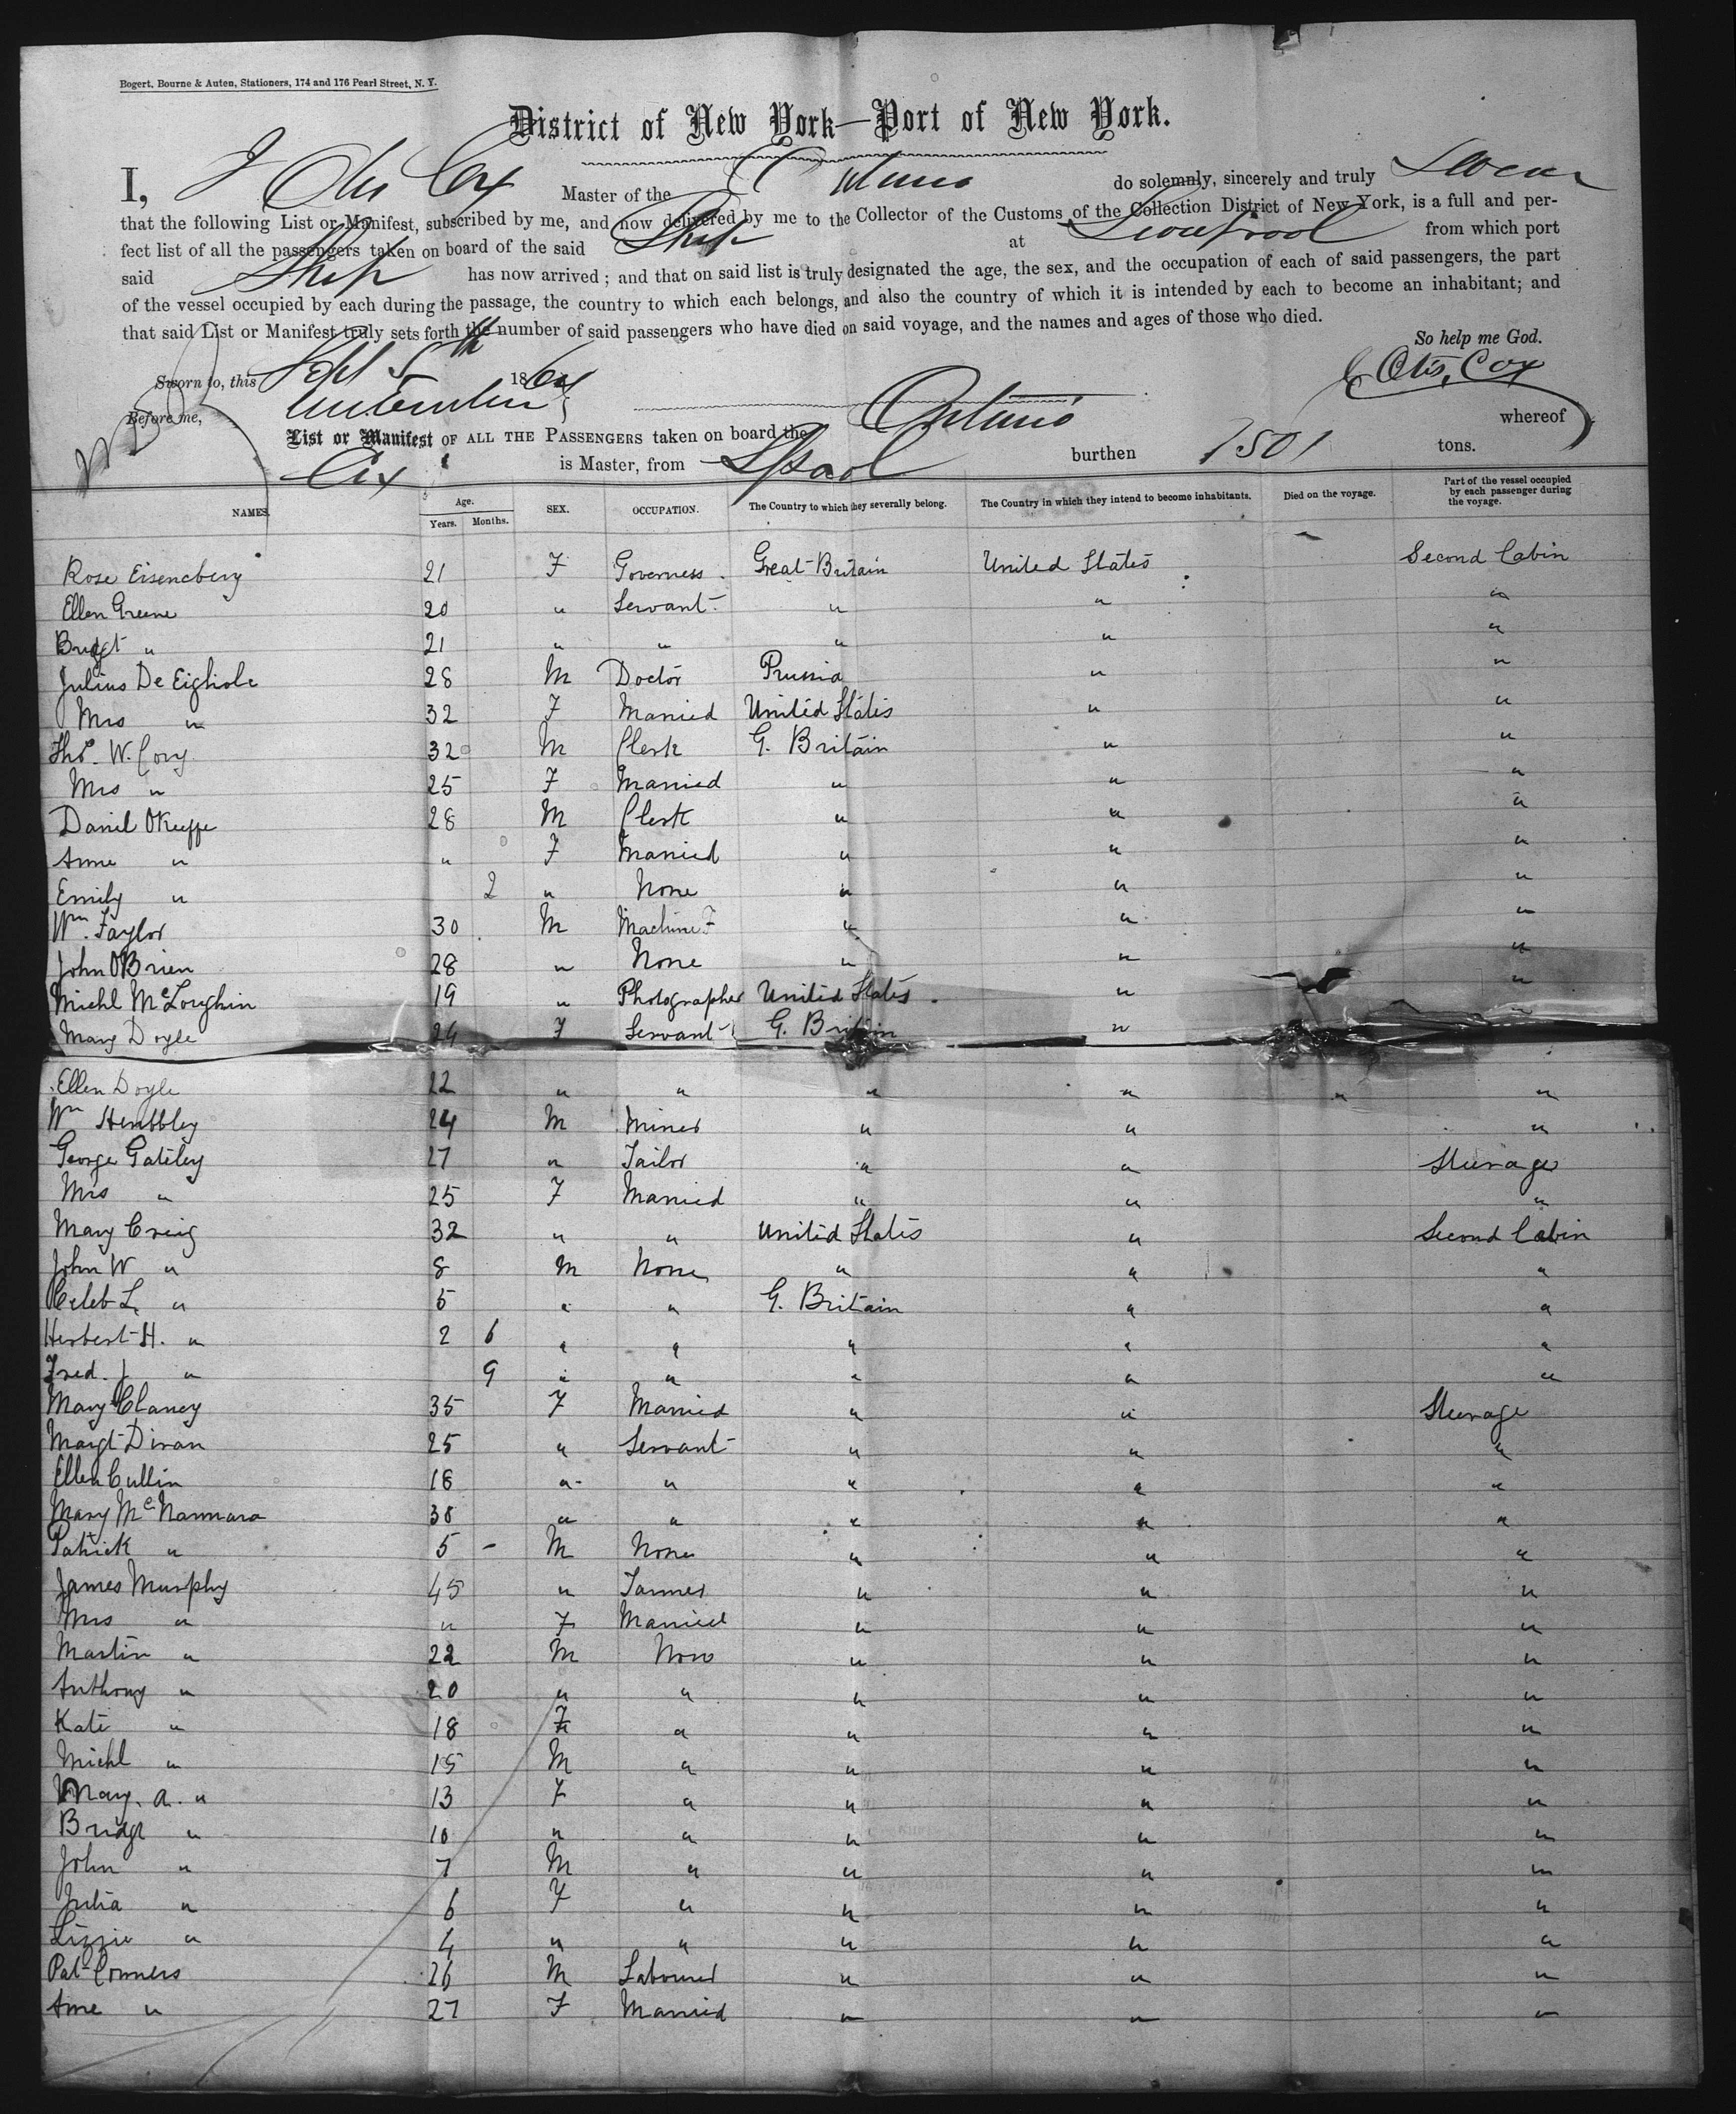 Bogert, Bourne & Auten, Stationers, 174 and 176 Pearl Street, N. Y.
District of New York—Port of New York.
I, J Otis Cox Master of the Ontario do solemnly, sincerely and truly Swear
that the following List or Manifest, subscribed by me, and now delivered by me to the Collector of the Customs of the Collection District of New York, is a full and per-
fect list of all the passengers taken on board of the said Ship at Liverpool from which port
said Ship has now arrived; and that on said list is truly designated the age, the sex, and the occupation of each of said passengers, the part
of the vessel occupied by each during the passage, the country to which each belongs, and also the country of which it is intended by each to become an inhabitant; and
that said List or Manifest truly sets forth the number of said passengers who have died on said voyage, and the names and ages of those who died.
So help me God.
Sworn to, this Sept 5th 186 Otis Cox
Before me,
List or Manifest OF ALL THE PASSENGERS taken on board the Ontario whereof
Cox is Master, from Lpool burthen 1501 tons.
NAMES. Age. Years. Months. SEX. OCCUPATION. The Country to which they severally belong. The Country in which they intend to become inhabitants. Died on the voyage. Part of the vessel occupied by each passenger during the voyage.
Rose Eisenberg 21 F Governess Great Britain United States Second Cabin
Ellen Greene 20 " Servant " " "
Bridgt " 21 " " " " "
Julius De Eighole 28 M Doctor Prussia " "
Mrs " 32 F Married United States " "
Thos. W. Cory 32 M Clerk G. Britain " "
Mrs " 25 F Married " " "
Daniel OKeeffe 28 M Clerk " " "
Anne " " F Married " " "
Emily " 2 " None " " "
Wm. Taylor 30 M " " "
John OBrien 28 " None " " "
Michl McLoughin 19 " Photographer United States " "
Mary Doyle 24 F Servant G. Britain "
Ellen Doyle 22 " " " " " "
Wm 24 M Miner " " "
George Gateley 27 " Tailor " " Steerage
Mrs " 25 F Married " " "
Mary Creig 32 " " United States " Second Cabin
John W " 8 M None " " "
Celeb L. " 5 " " G. Britain " "
Herbert H. " 2 6 " " " " "
Fred. J " 9 " " " " "
Mary Clancy 35 F Married " " Steerage
Margt Divan 25 " Servant " " "
Ellen Cullin 18 " " " " "
Mary McNarmara 38 " " " " "
Patrick " 5 - M None " " "
James Murphy 45 " Farmer " " "
Mrs " " F Married " " "
Martin " 22 M None " " "
Anthony " 20 " " " " "
Kate " 18 F " " " "
Michl " 15 M " " " "
Mary. A. " 13 F " " " "
Bridgt " 10 " " " " "
John " 7 M " " " "
Julia " 6 F " " " "
Lizzie " 4 " " " " "
Pat Conners 26 M Labourer " " "
Anne " 27 F Married " " "